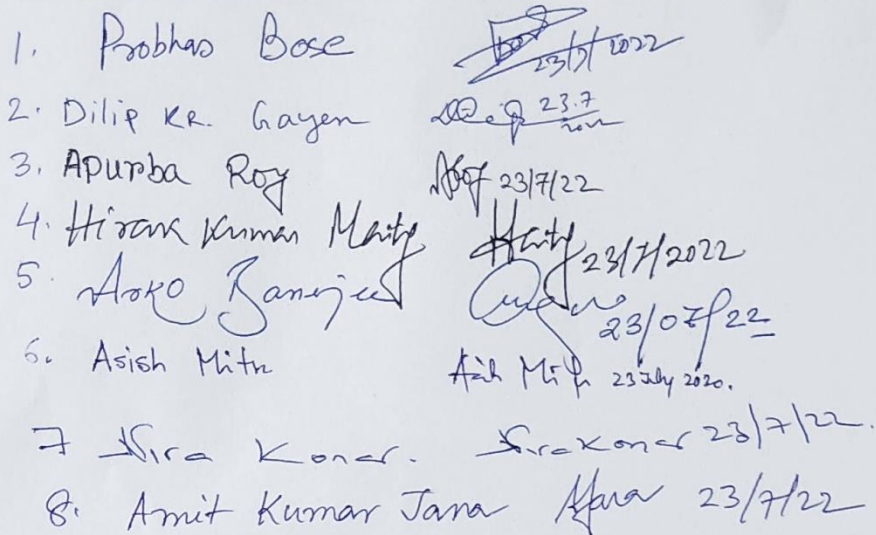 1. Probhas Bose 23/7/2022
2. Dilip KR. Gayen Dilip 23.7 2022
3. Apurba Roy ARoy 23/7/22
4. Hirak Kumar Maity HMaity 23/7/2022
5. Arko Banerjee 23/07/22
6. Asish Mitra Asish Mitra 23 July 2020.
7 Nira Konar. Nira Konar 23/7/22.
8. Amit Kumar Jana AJana 23/7/22